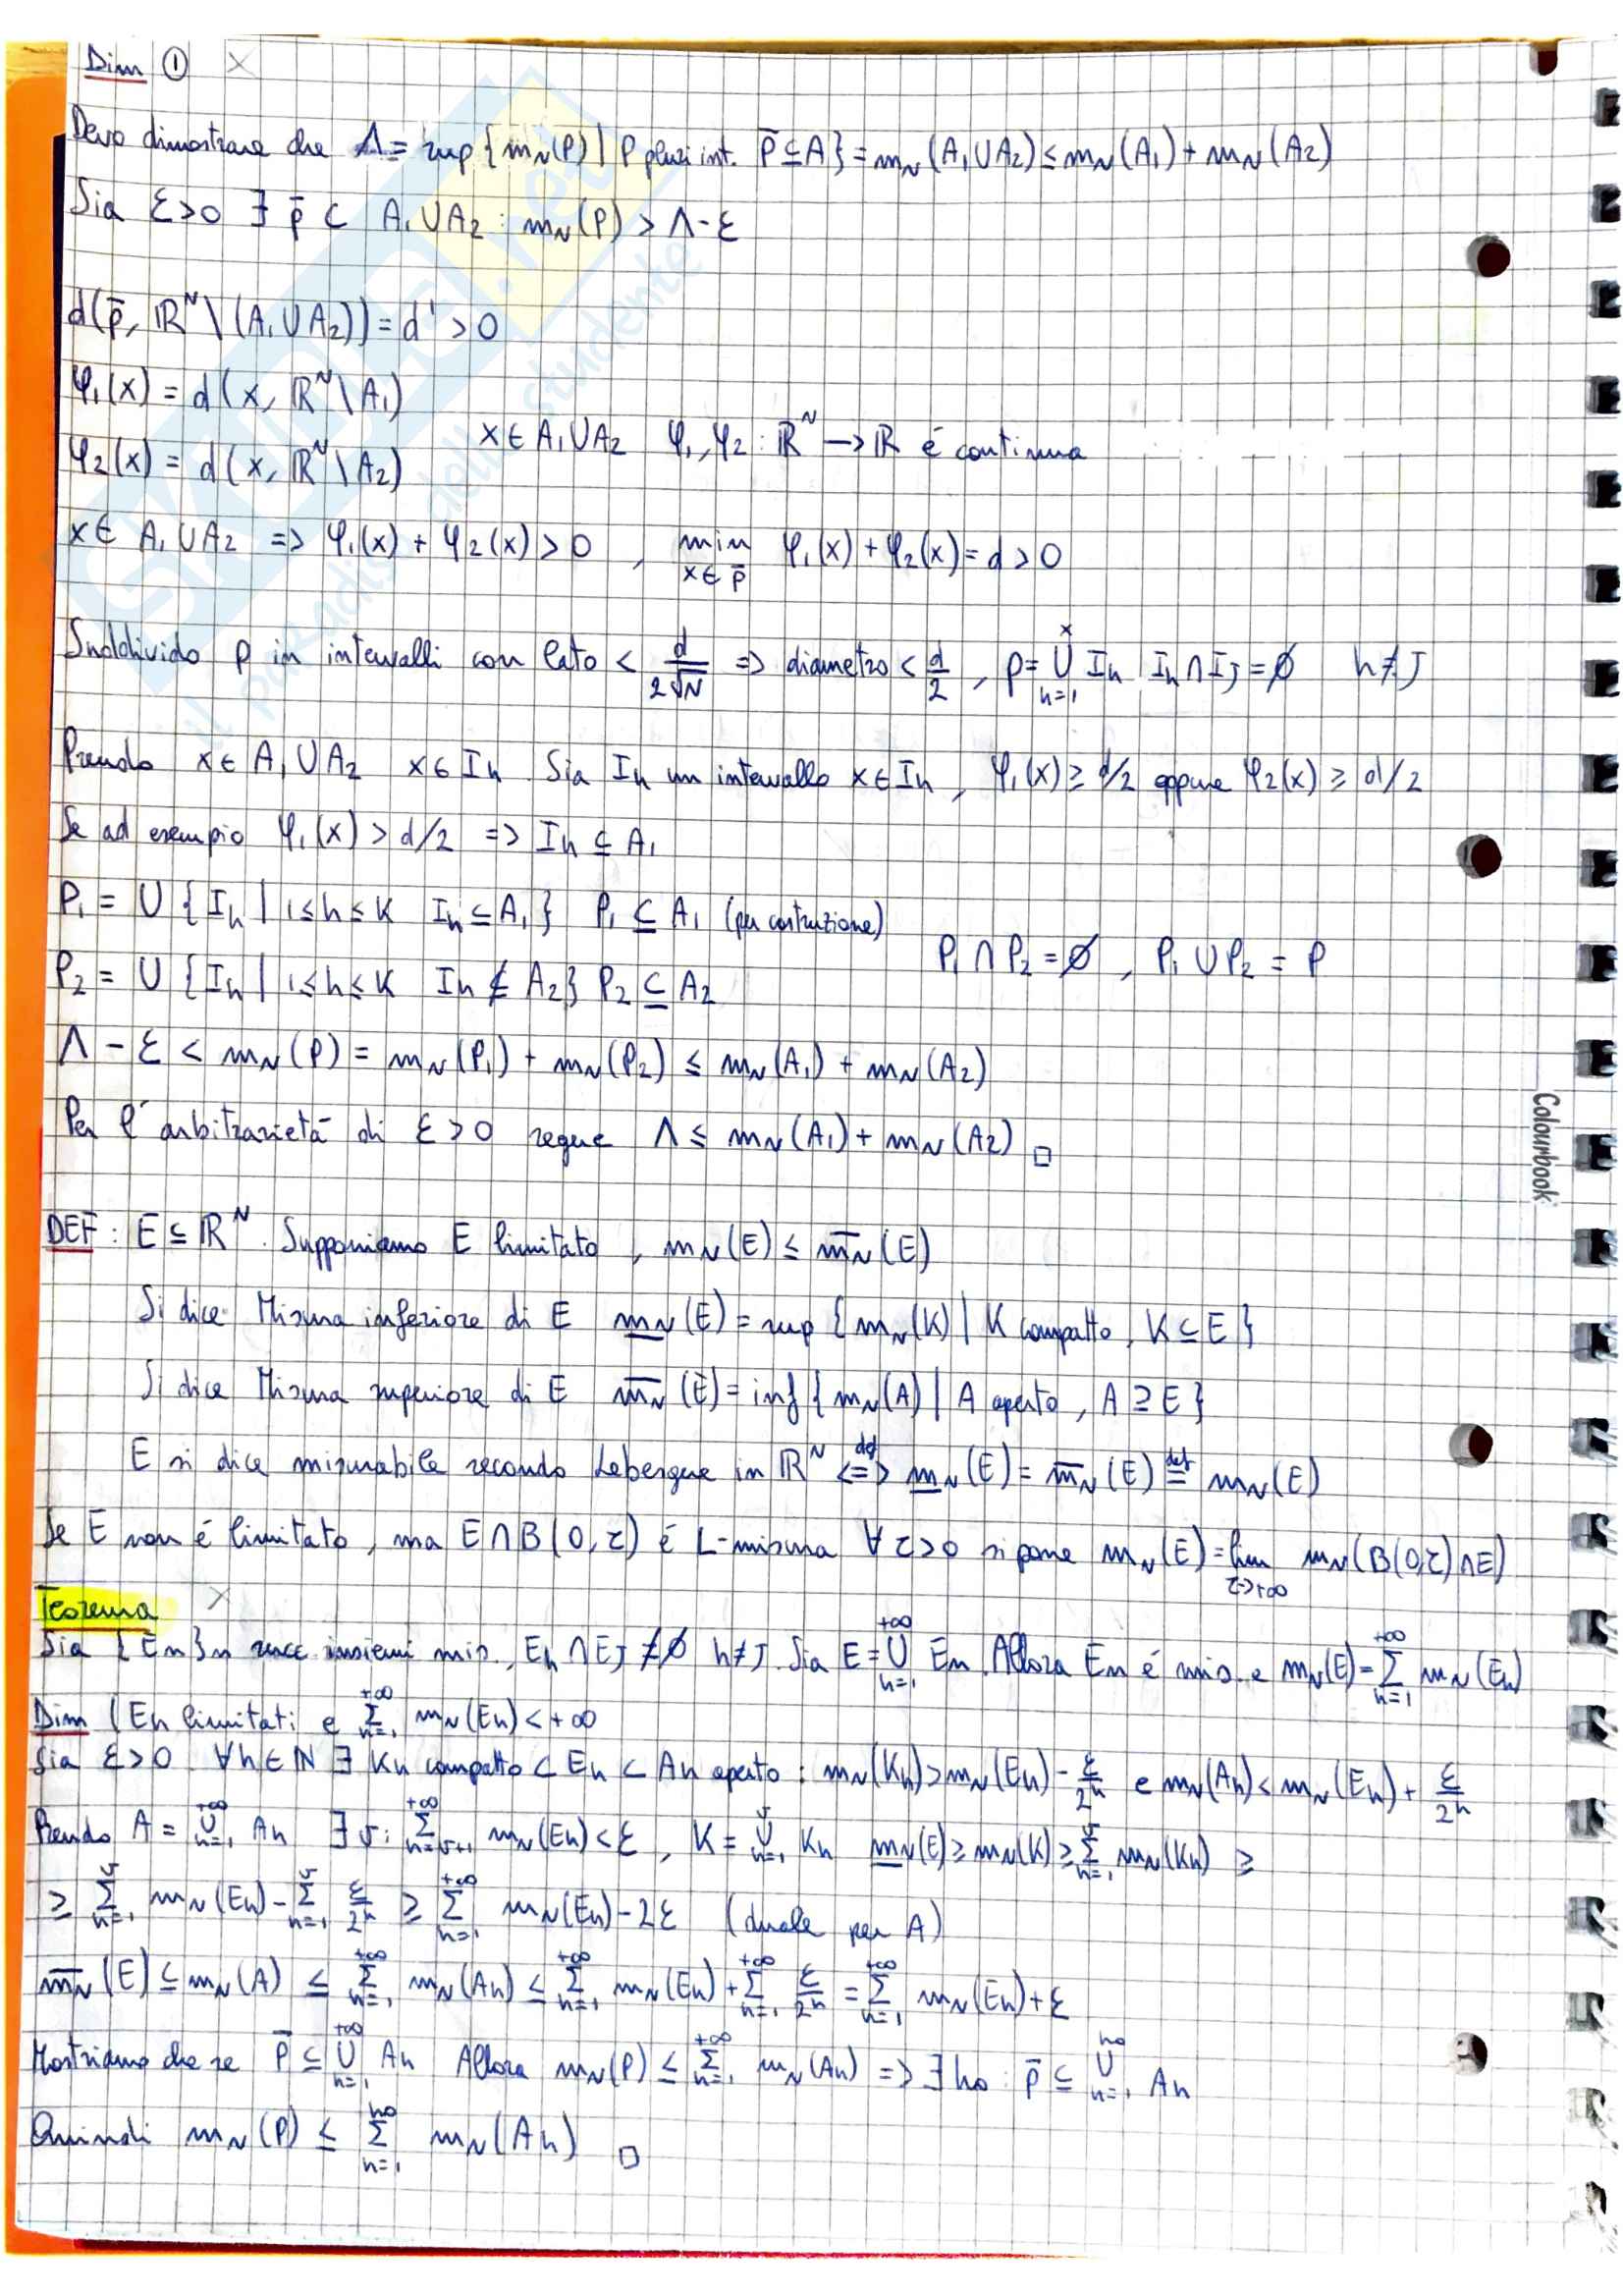 Dim ① ×
Devo dimostrare che Λ = sup {m_N(P) | P pluri int. P̄ ⊆ A} = m_N(A₁∪A₂) ≤ m_N(A₁) + m_N(A₂)
Sia ε>0 ∃ p̄ ⊂ A₁∪A₂ : m_N(P) > Λ-ε
d(p̄, ℝᴺ\(A₁∪A₂)) = d' > 0
φ₁(x) = d(x, ℝᴺ\A₁)
φ₂(x) = d(x, ℝᴺ\A₂)
x∈A₁∪A₂ φ₁,φ₂ : ℝᴺ → ℝ é continua
x∈ A₁∪A₂ => φ₁(x) + φ₂(x) > 0 , min_{x∈p̄} φ₁(x) + φ₂(x) = d > 0
Suddivido P in intervalli con lato < d/(2√N) => diametro < d/2 , P = ⋃_{h=1}^{k} I_h I_h ∩ I_J = ∅ h≠J
Prendo x∈A₁∪A₂ x∈I_h . Sia I_h un intervallo x∈I_h , φ₁(x) ≥ d/2 oppure φ₂(x) ≥ d/2
Se ad esempio φ₁(x) > d/2 => I_h ⊆ A₁
P₁ = ∪ {I_h | 1≤h≤K I_h ⊆ A₁} P₁ ⊆ A₁ (per costruzione)
P₂ = ∪ {I_h | 1≤h≤K I_h ⊄ A₂} P₂ ⊆ A₂
P₁∩P₂ = ∅ , P₁∪P₂ = P
Λ - ε < m_N(P) = m_N(P₁) + m_N(P₂) ≤ m_N(A₁) + m_N(A₂)
Per l'arbitrarietá di ε>0 segue Λ ≤ m_N(A₁) + m_N(A₂) □
DEF : E ⊆ ℝᴺ . Supponiamo E limitato , m_N(E) ≤ m̄_N(E)
Si dice Misura inferiore di E m̲_N(E) = sup {m_N(K) | K compatto, K ⊆ E}
Si dice Misura superiore di E m̄_N(E) = inf {m_N(A) | A aperto, A ⊇ E}
E si dice misurabile secondo Lebesgue in ℝᴺ <=def=> m̲_N(E) = m̄_N(E) =def= m_N(E)
Se E non é limitato, ma E∩B(0,r) é L-misura ∀r>0 si pone m_N(E) = lim_{r→+∞} m_N(B(0,r)∩E)
Teorema ×
Sia {E_n}n succ. insiemi mis., E_h∩E_J ≠ ∅ h≠J. Sia E = ⋃_{h=1}^{+∞} E_n. Allora E_n é mis. e m_N(E) = Σ_{h=1}^{+∞} m_N(E_h)
Dim (E_h limitati e Σ_{h=1}^{+∞} m_N(E_h) < +∞
Sia ε>0 ∀h∈ℕ ∃ K_h compatto ⊂ E_h ⊂ A_h aperto : m_N(K_h) > m_N(E_h) - ε/2ʰ e m_N(A_h) < m_N(E_h) + ε/2ʰ
Prendo A = ⋃_{h=1}^{+∞} A_h ∃ ν : Σ_{h=ν+1}^{+∞} m_N(E_h) < ε , K = ⋃_{h=1}^{ν} K_h m̲_N(E) ≥ m_N(K) ≥ Σ_{h=1}^{ν} m_N(K_h) ≥
≥ Σ_{h=1}^{ν} m_N(E_h) - Σ_{h=1}^{ν} ε/2ʰ ≥ Σ_{h=1}^{+∞} m_N(E_h) - 2ε (duale per A)
m̄_N(E) ≤ m_N(A) ≤ Σ_{h=1}^{+∞} m_N(A_h) ≤ Σ_{h=1}^{+∞} m_N(E_h) + Σ_{h=1}^{+∞} ε/2ʰ = Σ_{h=1}^{+∞} m_N(E_h) + ε
Mostriamo che se P̄ ⊆ ⋃_{h=1}^{+∞} A_h Allora m_N(P) ≤ Σ_{h=1}^{+∞} m_N(A_h) => ∃ h₀ : p̄ ⊆ ⋃_{h=1}^{h₀} A_h
Quindi m_N(P) ≤ Σ_{h=1}^{h₀} m_N(A_h) □
Colourbook
SKUOLA.net
il paradiso dello studente